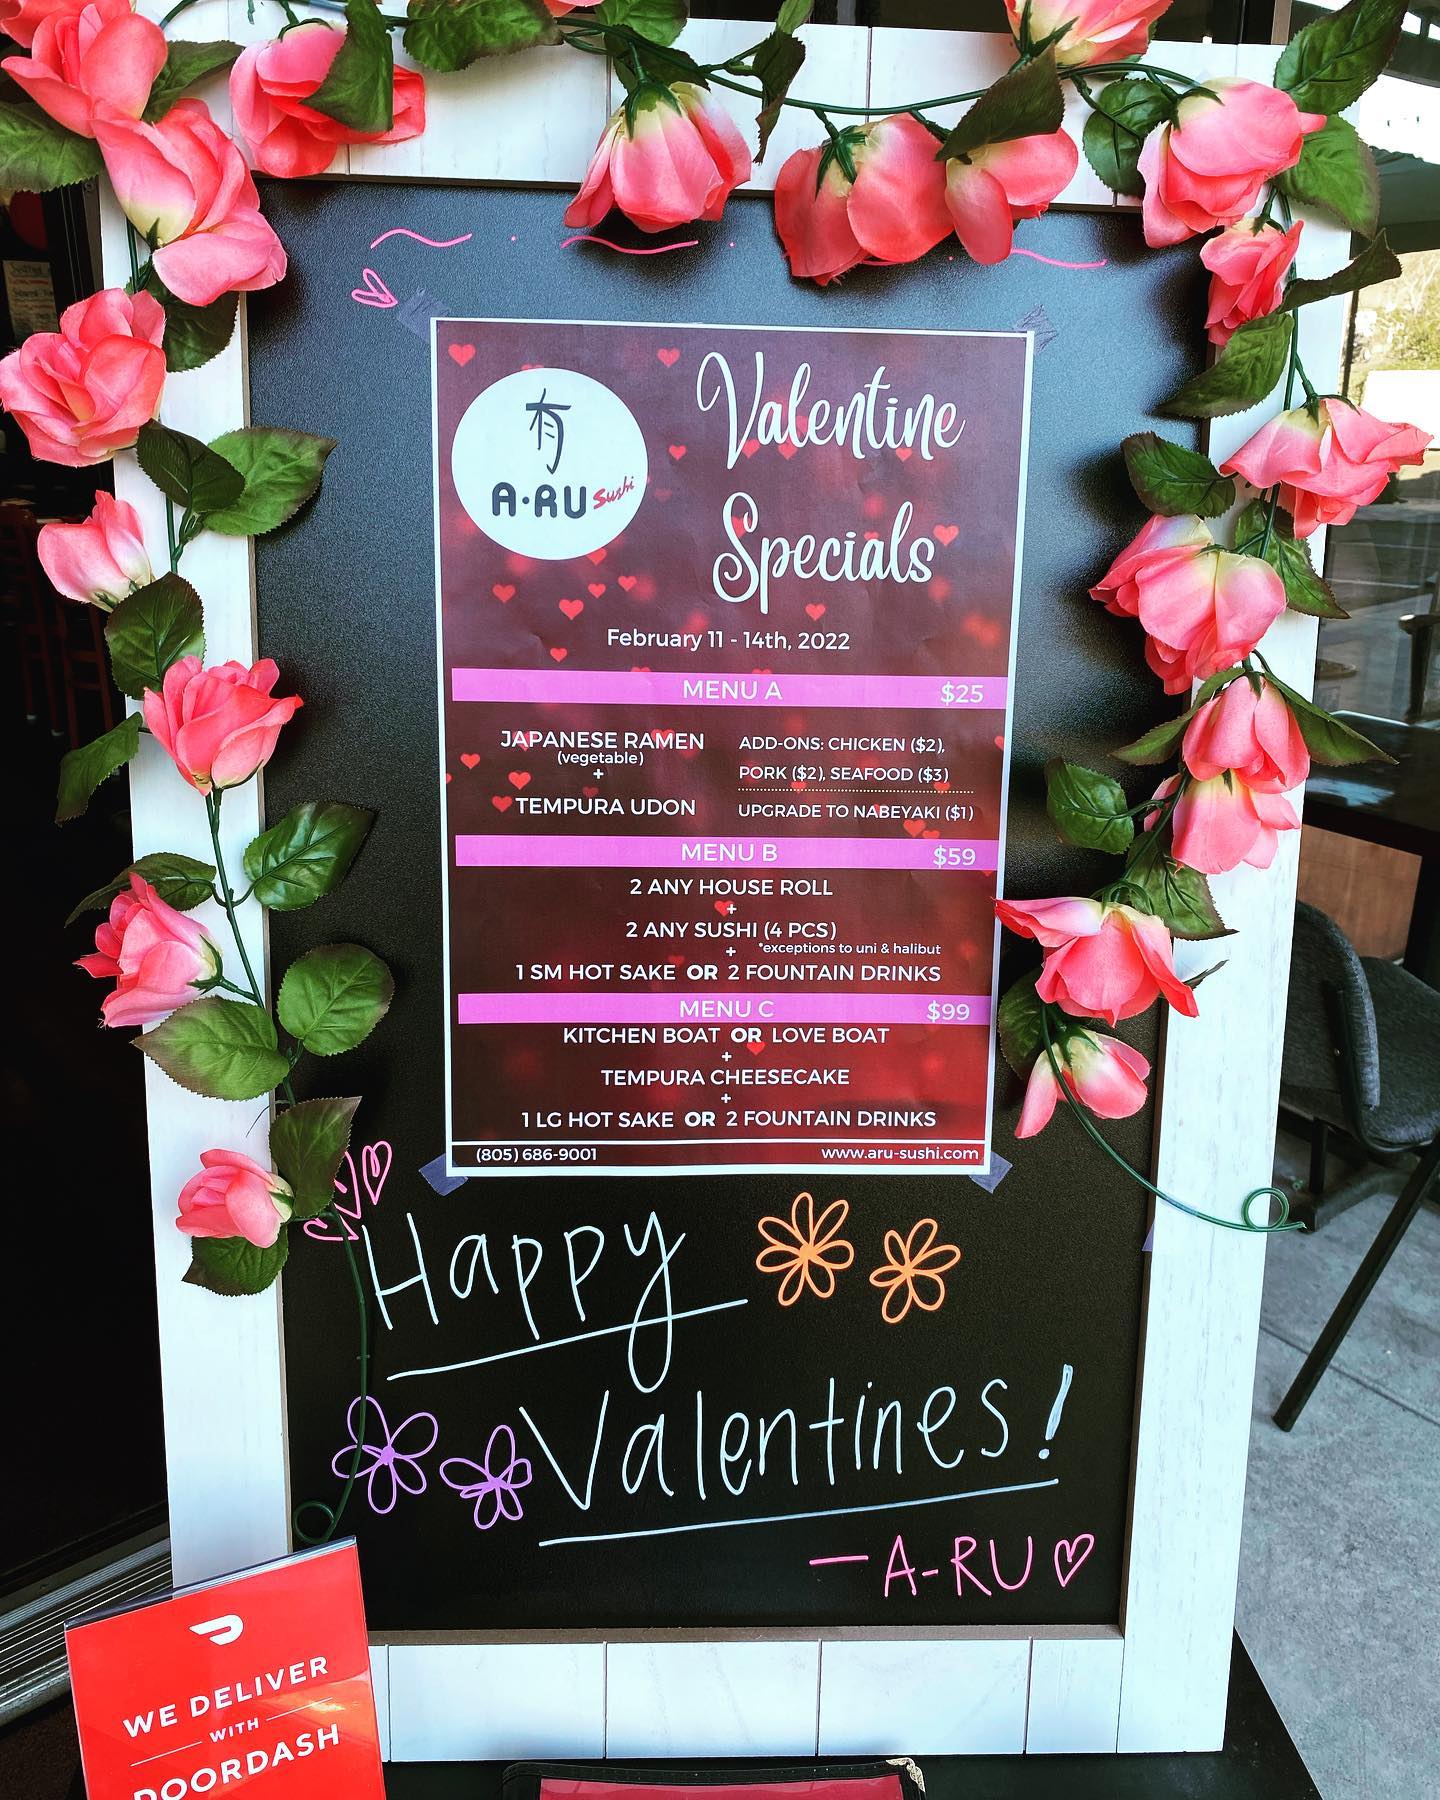 有
A·RU Sushi
Valentine
Specials
February 11 - 14th, 2022
MENU A $25
JAPANESE RAMEN
(vegetable)
+
TEMPURA UDON
ADD-ONS: CHICKEN ($2),
PORK ($2), SEAFOOD ($3)
UPGRADE TO NABEYAKI ($1)
MENU B $59
2 ANY HOUSE ROLL
+
2 ANY SUSHI (4 PCS)
+ *exceptions to uni & halibut
1 SM HOT SAKE OR 2 FOUNTAIN DRINKS
MENU C $99
KITCHEN BOAT OR LOVE BOAT
+
TEMPURA CHEESECAKE
+
1 LG HOT SAKE OR 2 FOUNTAIN DRINKS
(805) 686-9001 www.aru-sushi.com
Happy
Valentines!
—A-RU
WE DELIVER
WITH
DOORDASH